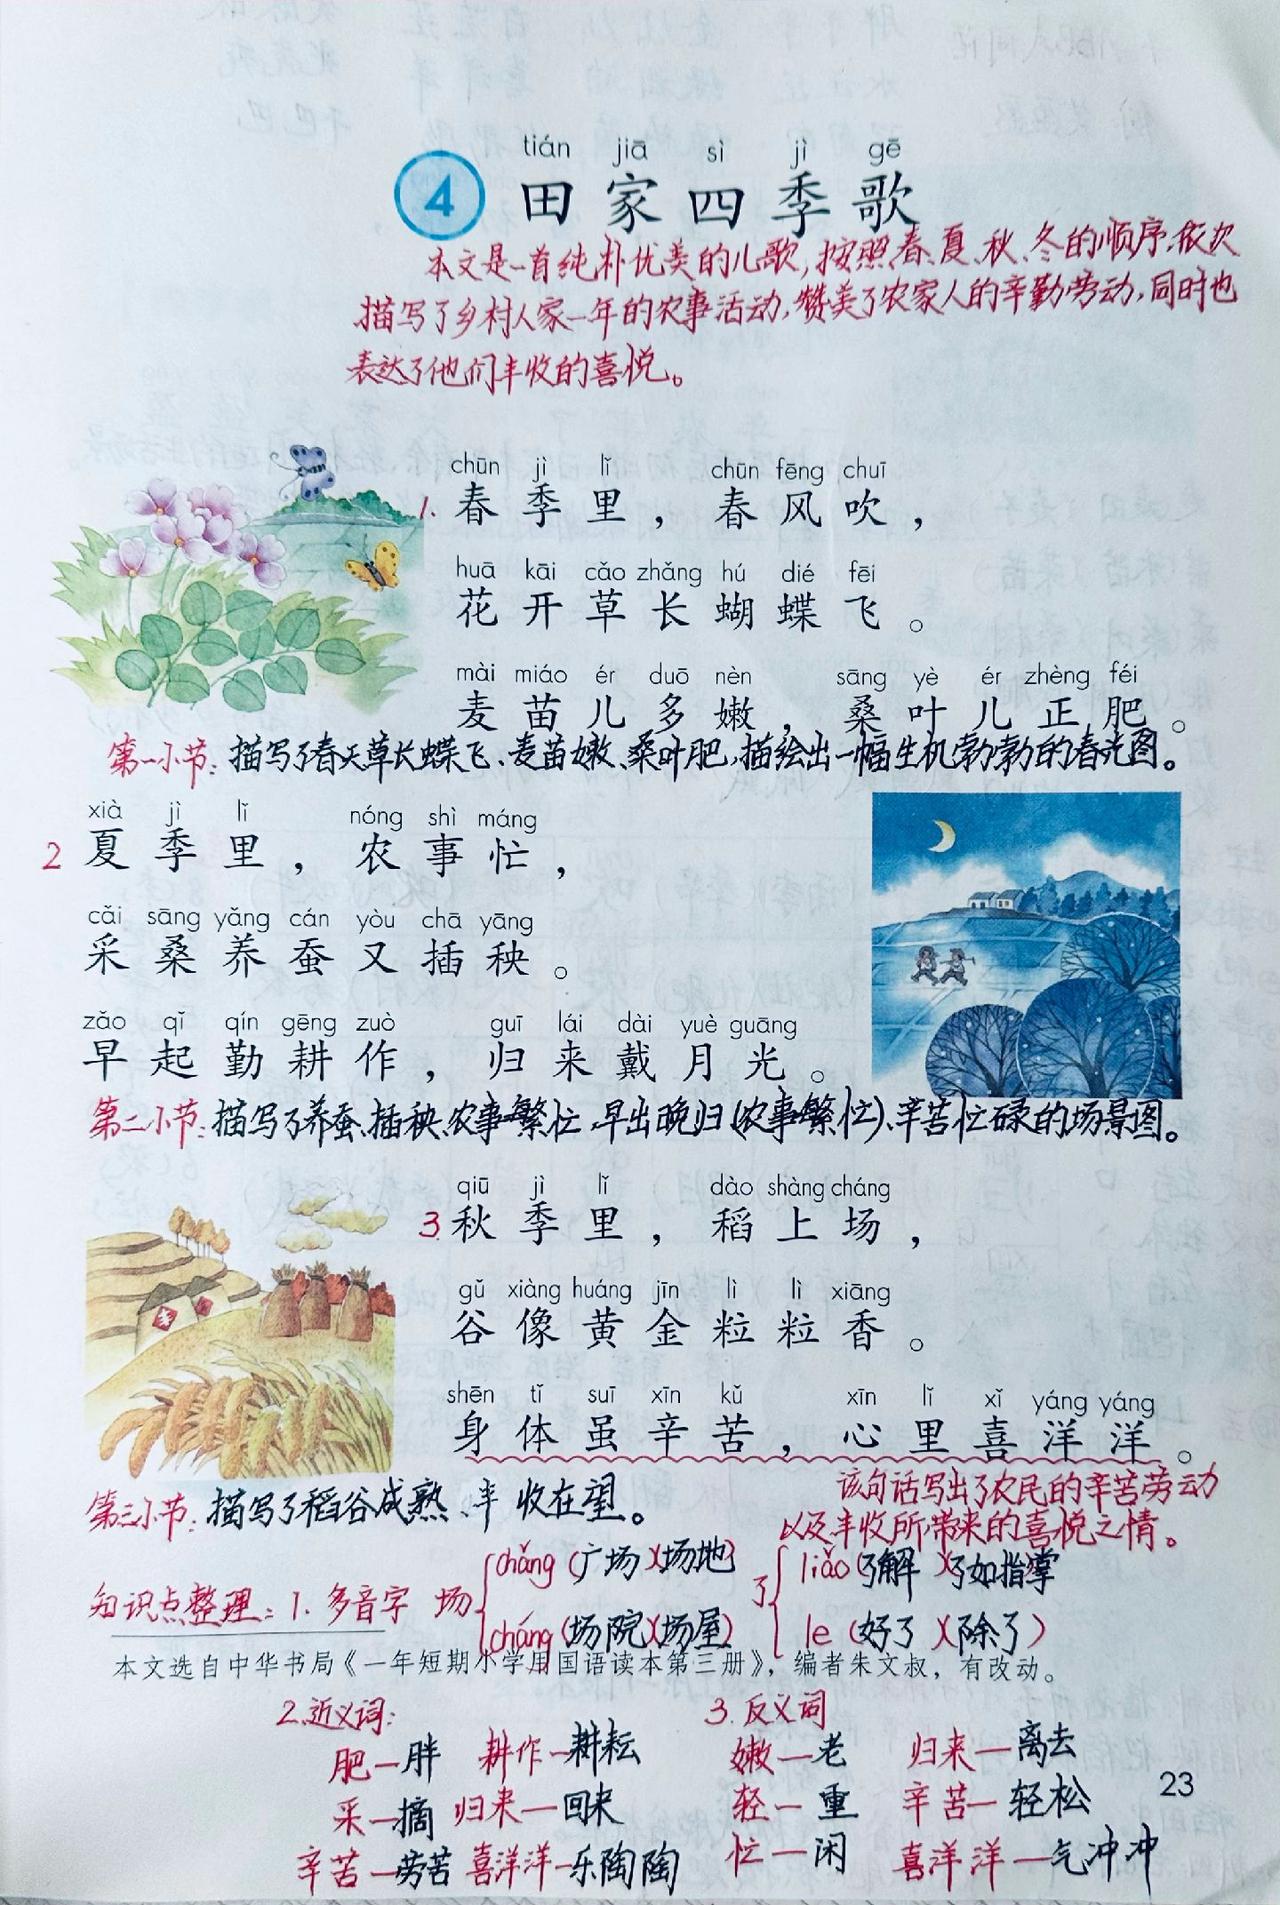 tián jiā sì jì gē
4 田家四季歌
本文是一首纯朴优美的儿歌,按照春、夏、秋、冬的顺序,依次
描写了乡村人家一年的农事活动,赞美了农家人的辛勤劳动,同时也
表达了他们丰收的喜悦。
chūn jì lǐ chūn fēng chuī
1. 春季里，春风吹，
huā kāi cǎo zhǎng hú dié fēi
花开草长蝴蝶飞。
mài miáo ér duō nèn sāng yè ér zhèng féi
麦苗儿多嫩，桑叶儿正肥。
第一小节:描写了春天草长蝶飞、麦苗嫩、桑叶肥,描绘出一幅生机勃勃的春光图。
xià jì lǐ nóng shì máng
2 夏季里，农事忙，
cǎi sāng yǎng cán yòu chā yāng
采桑养蚕又插秧。
zǎo qǐ qín gēng zuò guī lái dài yuè guāng
早起勤耕作，归来戴月光。
第二小节:描写了养蚕、插秧、农事繁忙,早出晚归(农事繁忙)、辛苦忙碌的场景图。
qiū jì lǐ dào shàng cháng
3. 秋季里，稻上场，
gǔ xiàng huáng jīn lì lì xiāng
谷像黄金粒粒香。
shēn tǐ suī xīn kǔ xīn lǐ xǐ yáng yáng
身体虽辛苦，心里喜洋洋。
第三小节:描写了稻谷成熟、丰收在望。
该句话写出了农民的辛苦劳动
以及丰收所带来的喜悦之情。
知识点整理:1. 多音字 场 chǎng(广场)(场地) cháng(场院)(场屋) 了 liǎo(了解)(了如指掌) le(好了)(除了)
本文选自中华书局《一年短期小学用国语读本第三册》，编者朱文叔，有改动。
2.近义词: 3.反义词
肥—胖 耕作—耕耘 嫩—老 归来—离去
采—摘 归来—回来 轻—重 辛苦—轻松
辛苦—劳苦 喜洋洋—乐陶陶 忙—闲 喜洋洋—气冲冲
23